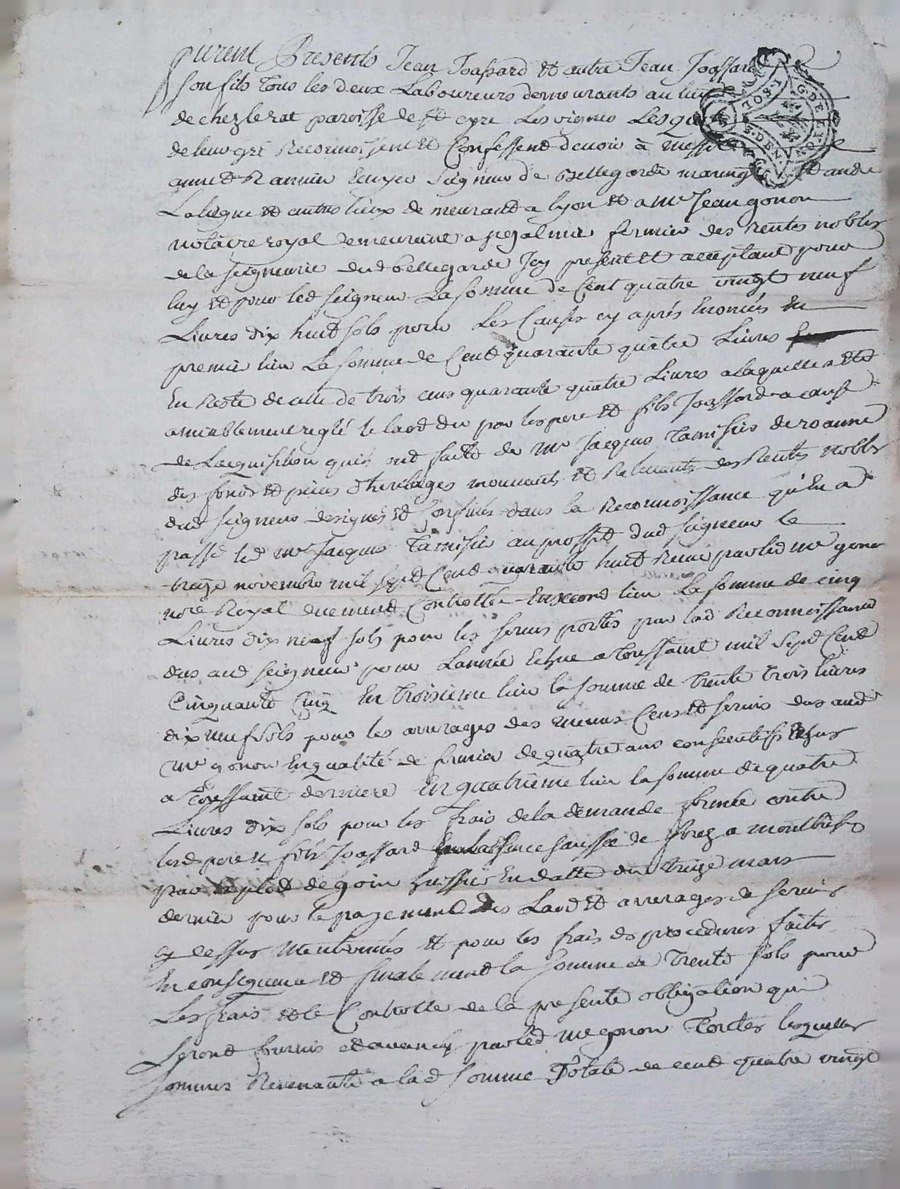 furent Presents Jean Joassard et autre Jean Joassard
son fils tous les deux Laboureurs demeurants au lieu
de chezlerat paroisse de St cyre Les vignes Lesq
de leur gré Reconnoissent et Confessent devoir à Mess
anne Rannier Ecuyer Seigneur de Bellegarde maring et
Laliegue et autres lieux demeurand a Lyon et a Me Jean gonon
notaire royal demeurant a St galmier fermier des Rentes nobles
de la seigneurie dud bellegarde Icy present et acceptant pour
luy et pour led seigneur La somme de Cent quatre vingt neuf
Livres dix huit sols pour Les Causes cy après Enoncées En
premier lieu La somme de Cent quarante quatre Livres
En reste de celle de trois cens quarante quatre Livres a laquelle a été
amiablement reglé le laod du par les pere et fils Joassard a cause
de Lacquisition quils ont faite de Me Jacques Tamisier de roanne
des fonds et pieces d'heritages mouvants et Relevants des Rentes nobles
dud seigneur designés et Confinés dans la Reconnoissance qu'En a
passé led Me Jacques Tamisier au proffit dud seigneur le
treize novembre mil sept Cent quarante huit Reçue par led Me gonon
nore Royal duement Controllée En second lieu La somme de cinq
Livres dix neuf sols pour les servis portés par lad Reconnoissance
dus aud seigneur pour L'année Echue a Toussaint mil sept Cent
Cinquante Cinq En Troisieme lieu la somme de Trente trois livres
dix neuf sols pour les arrerages des menus Cens et servis dus aud
Me gonon En qualité de fermier de quatre ans consecutifs Echus
a Toussaint derniere En quatrieme lieu la somme de quatre
Livres dix sols pour les frais de la demande formée contre
lesd pere et fils Joassard En la senechaussée de forez a montbrison
par exploit de goin huissier En datte du treize mars
dernier pour le payement des Laod et arrerages de servis
cy dessus mentionnés et pour les frais de procedures faites
En consequence et finalement la somme de Trente sols pour
Les frais et le Controlle de la presente obligation qui
seront fournis et avancés par led Me gonon Toutes lesquelles
sommes Revenante a la d somme Totale de cent quatre vingt
G. DE LYON
I. SOL
8. DEN